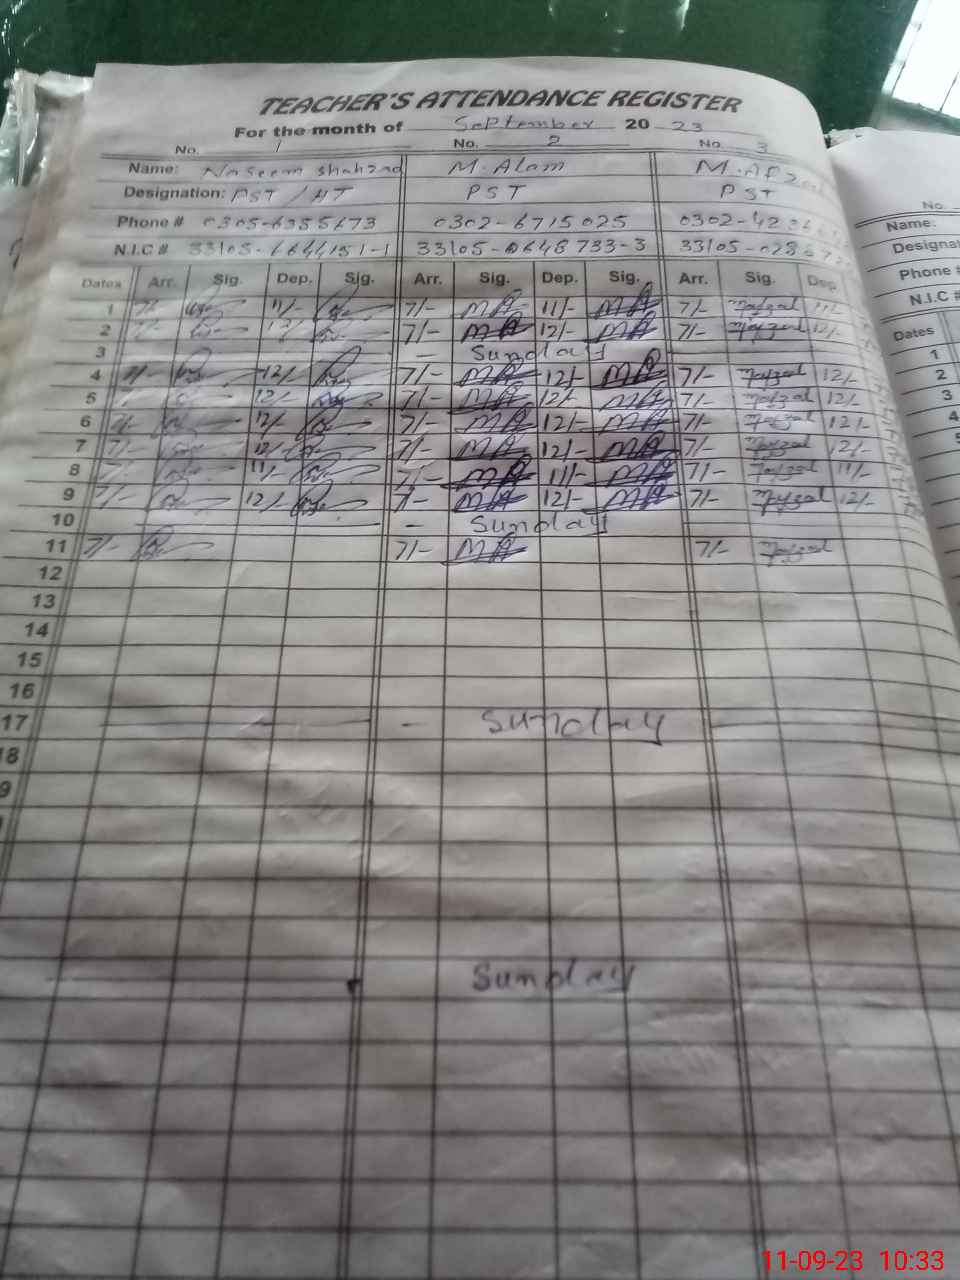 TEACHER'S ATTENDANCE REGISTER
For the month of September 20 23
No. 1 No. 2 No. 3
Name: Naseem Shahzad M. Alam M.
Designation: PST / HT PST PST
Phone # 0305-6355673 0302-6715025 0302-42
N.I.C # 33105-6644151-1 33105-0648733-3 33105-028
Dates Arr. Sig. Dep. Sig. Arr. Sig. Dep. Sig. Arr. Sig. Dep
1 7/- 11/- 7/- MA 11/- MA 7/- 11/-
2 7/- 12/- 7/- MA 12/- MA 7/- 12/-
3 — Sunday
4 7/- 12/- 7/- MA 12/- MA 7/- 12/-
5 12/- 7/- MA 12/- MA 7/- 12/-
6 7/- 12/- 7/- MA 12/- MA 7/- 12/-
7 7/- 12/- 7/- MA 12/- MA 7/- 12/-
8 7/- 11/- 7/- MA 11/- MA 7/- 11/-
9 7/- 12/- 7/- MA 12/- MA 7/- 12/-
10 — Sunday
11 7/- 7/- MA 7/-
12
13
14
15
16
17 - Sunday
18
9
Sunday
No.
Name:
Designat
Phone #
N.I.C #
Dates
1
2
3
4
5
11-09-23 10:33